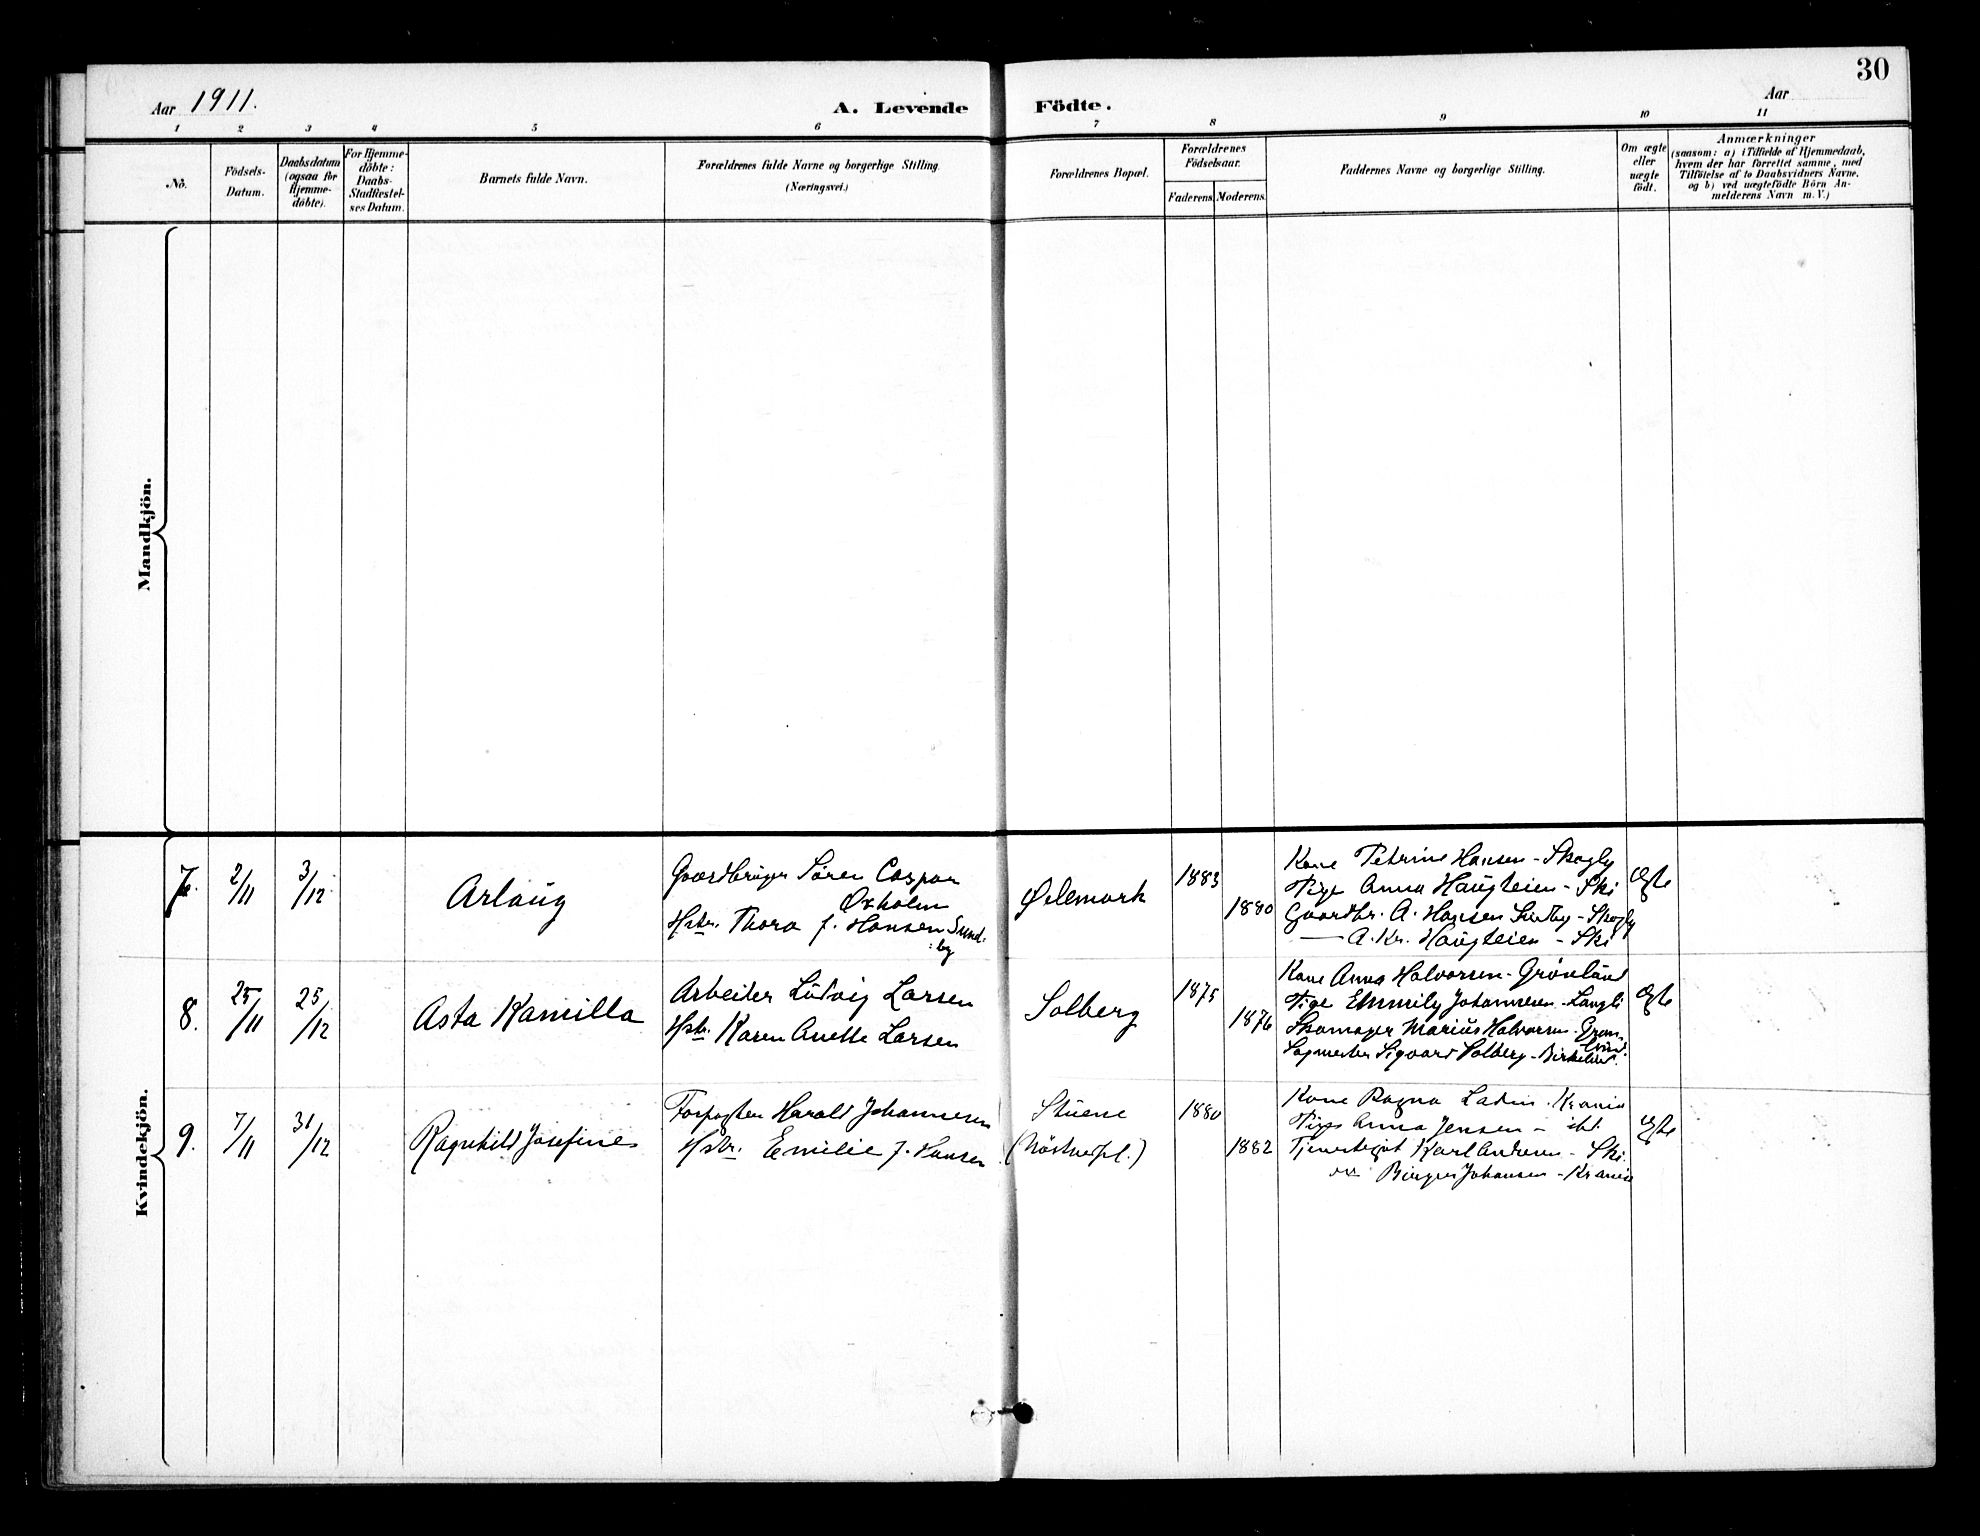 30
Aar 1911.
A. Levende Födte.
Aar
1 2 3 4 5 6 7 8 9 10 11
No.
Födsels-Datum.
Daabsdatum (ogsaa for Hjemme-döbte).
For Hjemme-döbte: Daabs-Stadfæstel-ses Datum.
Barnets fulde Navn.
Forældrenes fulde Navne og borgerlige Stilling.
(Næringsvei.)
Forældrenes Bopæl.
Forældrenes Födselsaar.
Faderens. Moderens.
Faddernes Navne og borgerlige Stilling.
Om ægte eller uægte födt.
Anmærkninger
(saasom: a) i Tilfælde af Hjemmedaab,
hvem der har forrettet samme, med
Tilföielse af to Daabsvidners Navne,
og b) ved uægtefödte Börn An-
melderens Navn m. V.)
Mandkjön.
Kvindekjön.
7. 2/11 3/12 Arlaug
Gaardbruger Sören Caspar
Oxholm
Hstr. Thora f. Hansen Sund-
by
Ødemark
1883
1880
Kone Petrine Hansen - Skogly
Pige Anna Haugteien - Ski
Gaardbr. A. Hansen Sundby - Skogly
— A. Kr. Haugteien - Ski
Ægte
8. 25/11 25/12 Asta Kamilla
Arbeider Ludvig Larsen
Hstr. Karen Anette Larsen
Solberg
1875
1876
Kone Anna Halvorsen - Grønlund
Pige Emmily Johannesen - Langli
Skomager Marius Halvorsen - Grøn-
lund.
Sagmester Sigvard Solberg - Birkelund.
Ægte
9. 7/11 31/12 Ragnhild Josefine
Forpagter Harald Johannesen
Hstr. Emilie f. Hansen
Stuene
(Nöstvedpl.)
1880
1882
Kone Ragna Ladim - Krania
Pige Anna Jensen - ibd.
Tjenestegut Karl Andersen - Ski
Birger Johansen - Krania
Ægte